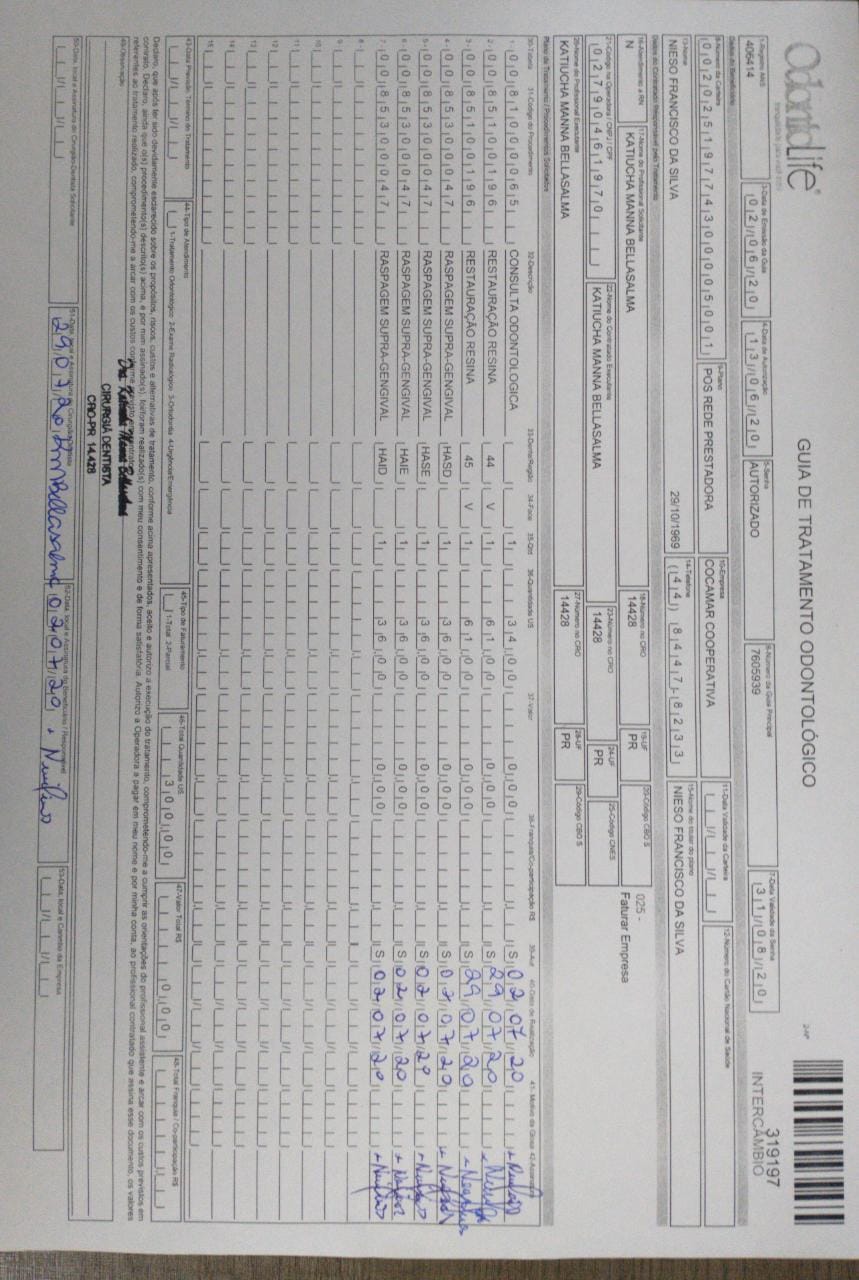 OdontoLife®
tranquilidade para você sorrir
GUIA DE TRATAMENTO ODONTOLÓGICO
2-Nº
319197
INTERCÂMBIO
1-Registro ANS
406414
3-Data de Emissão da Guia
02/06/20
4-Data de Autorização
13/06/20
5-Senha
AUTORIZADO
6-Número da Guia Principal
7605939
7-Data Validade da Senha
31/08/20
Dados do Beneficiário
8-Número da Carteira
00202519774300005001
9-Plano
POS REDE PRESTADORA
10-Empresa
COCAMAR COOPERATIVA
11-Data Validade da Carteira
12-Número do Cartão Nacional de Saúde
13-Nome
NIESO FRANCISCO DA SILVA
29/10/1969
14-Telefone
(44) 8447-8233
15-Nome do titular do plano
NIESO FRANCISCO DA SILVA
Dados do Contratado Responsável pelo Tratamento
16-Atendimento a RN
N
17-Nome do Profissional Solicitante
KATIUCHA MANNA BELLASALMA
18-Número no CRO
14428
19-UF
PR
20-Código CBO S
025 -
Faturar Empresa
21-Código na Operadora / CNPJ / CPF
02790461970
22-Nome do Contratado Executante
KATIUCHA MANNA BELLASALMA
23-Número no CRO
14428
24-UF
PR
25-Código CNES
26-Nome do Profissional Executante
KATIUCHA MANNA BELLASALMA
27-Número no CRO
14428
28-UF
PR
29-Código CBO S
Plano de Tratamento / Procedimentos Solicitados
30-Tabela 31-Código do Procedimento 32-Descrição 33-Dente/Região 34-Face 35-Qtd 36-Quantidade US 37-Valor 38-Franquia/Co-participação R$ 39-Aut 40-Data de Realização 41- Motivo da Glosa 42-Assinatura
1- 00 81000065 CONSULTA ODONTOLOGICA 1 34,00 0,00 S 02/07/20
2- 00 85100196 RESTAURAÇÃO RESINA 44 V 1 61,00 0,00 S 29/07/20
3- 00 85100196 RESTAURAÇÃO RESINA 45 V 1 61,00 0,00 S 29/07/20
4- 00 85300047 RASPAGEM SUPRA-GENGIVAL HASD 1 36,00 0,00 S 02/07/20
5- 00 85300047 RASPAGEM SUPRA-GENGIVAL HASE 1 36,00 0,00 S 02/07/20
6- 00 85300047 RASPAGEM SUPRA-GENGIVAL HAIE 1 36,00 0,00 S 02/07/20
7- 00 85300047 RASPAGEM SUPRA-GENGIVAL HAID 1 36,00 0,00 S 02/07/20
8-
9-
10-
11-
12-
13-
14-
15-
43-Data Previsão Término do Tratamento
44-Tipo de Atendimento
1-Tratamento Odontológico 2-Exame Radiológico 3-Ortodontia 4-Urgência/Emergência
45-Tipo de Faturamento
1-Total 2-Parcial
46-Total Quantidade US
300,00
47-Valor Total R$
0,00
48-Total Franquia / Co-participação R$
Declaro, que após ter sido devidamente esclarecido sobre os propósitos, riscos, custos e alternativas de tratamento, conforme acima apresentados, aceito e autorizo a execução do tratamento, comprometendo-me a cumprir as orientações do profissional assistente e arcar com os custos previstos em
contrato. Declaro, ainda que o(s) procedimento(s) descrito(s) acima, e por mim assinado(s), foi/foram realizado(s) com meu consentimento e de forma satisfatória. Autorizo a Operadora a pagar em meu nome e por minha conta, ao profissional contratado que assina esse documento, os valores
referentes ao tratamento realizado, comprometendo-me a arcar com os custos conforme previsto em contrato.
49-Observação
Dra. Katiucha Manna Bellasalma
CIRURGIÃ DENTISTA
CRO-PR 14.428
50-Data, local e Assinatura do Cirurgião-Dentista Solicitante
51-Data, local e Assinatura do Cirurgião-Dentista
29/07/20 KMBellasalma
52-Data, local e Assinatura do Beneficiário / Responsável
02/07/20
53-Data, local e Carimbo da Empresa